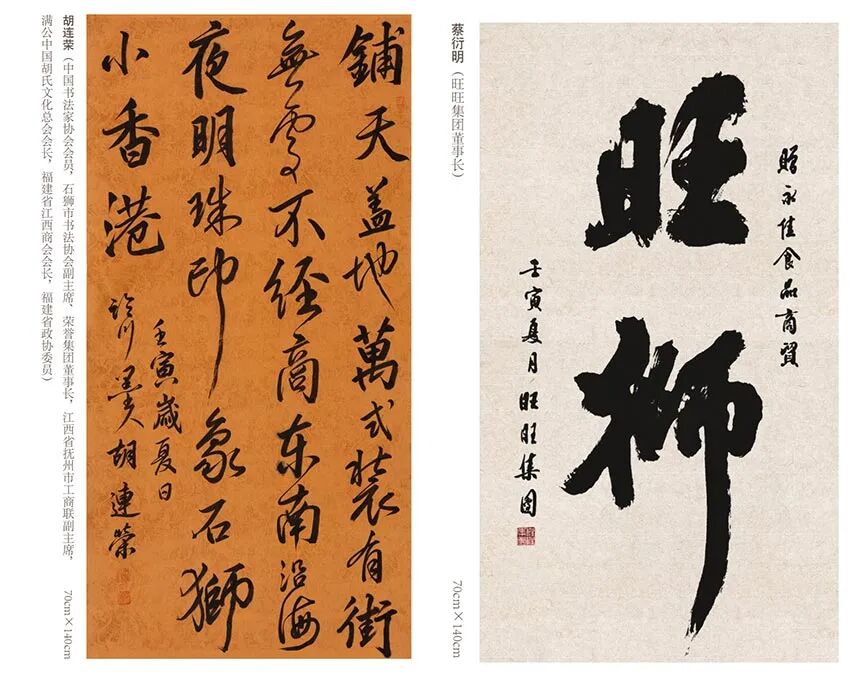 胡连荣（中国书法家协会会员，石狮市书法协会副主席、荣誉集团董事长，江西省抚州市工商联副主席，
满公中国胡氏文化总会会长，福建省江西商会会长，福建省政协委员）
70cm×140cm
鋪天盖地萬式裝有街
無處不經商东南沿海
夜明珠印象石獅
小香港
壬寅歲夏日
臨川墨人胡連榮
蔡衍明（旺旺集团董事长）
70cm×140cm
贈永佳食品商貿
旺狮
壬寅夏月旺旺集团